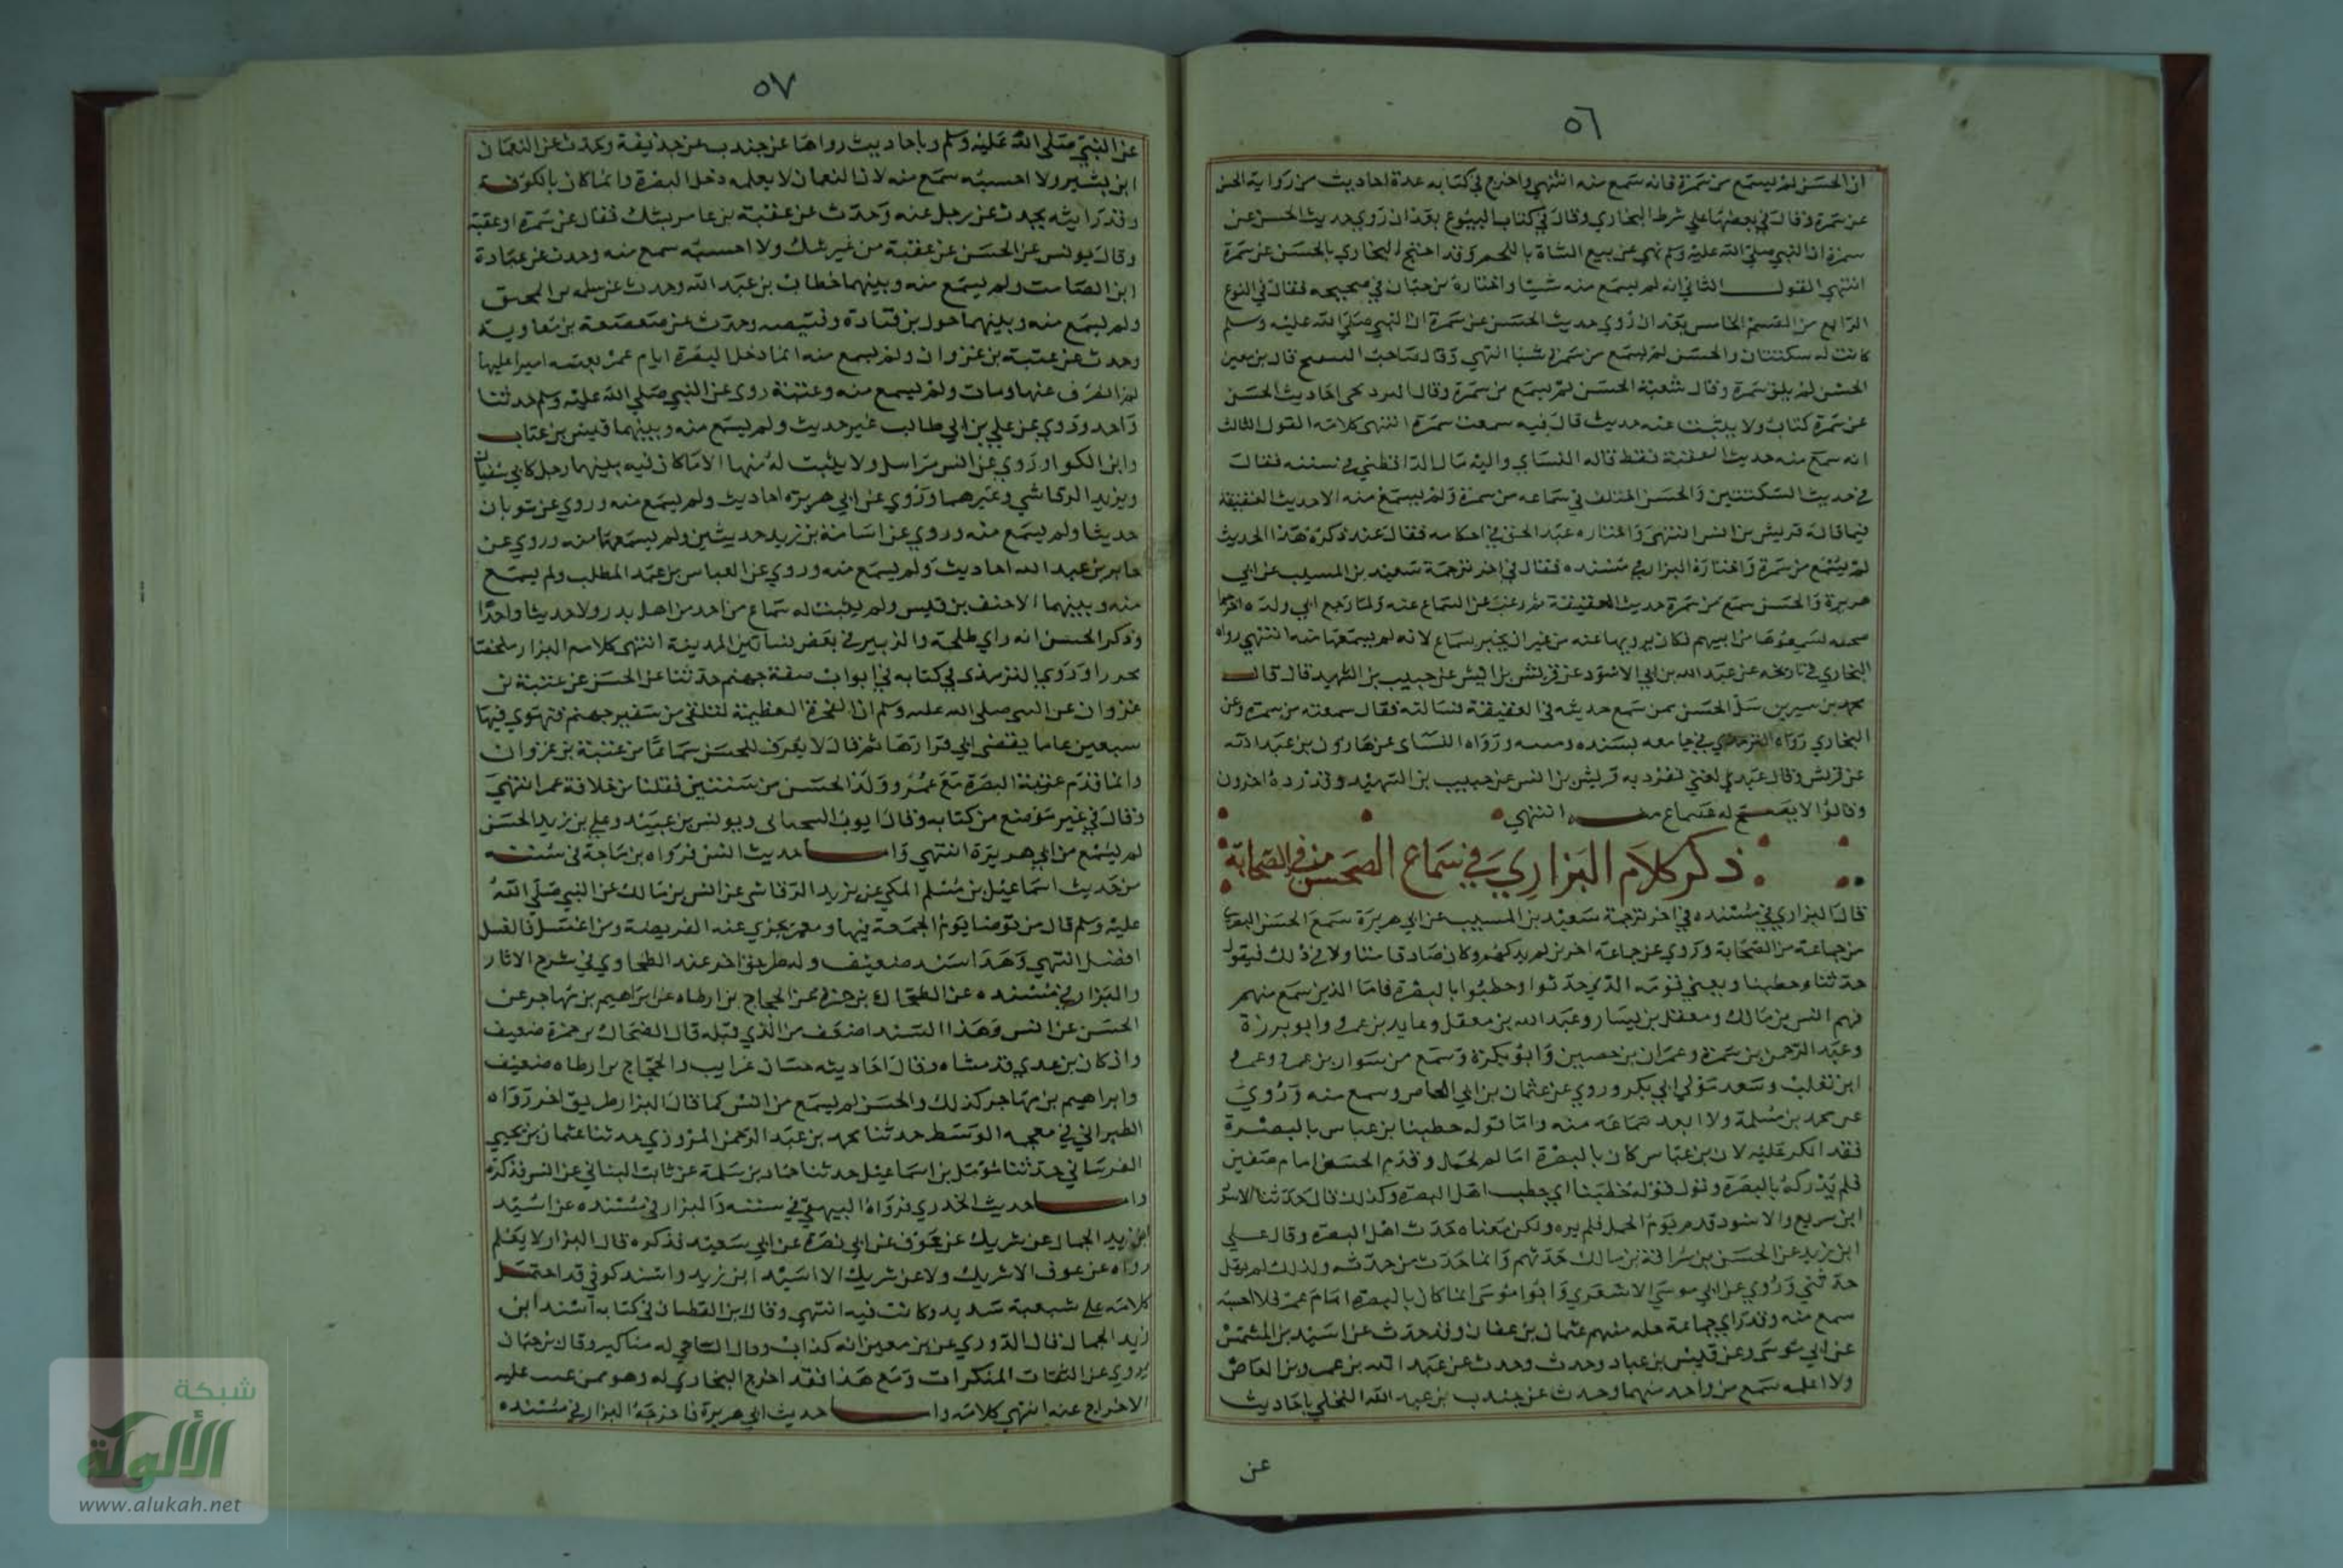 ٥٦
ان الحسن لم يسمع من سمرة فانه سمع منه انتهي واخرج في كتابه عدة احاديث من رواية الحسن
عن سمرة وقال في بعضها علي شرط البخاري وقال في كتاب البيوع بعد ان روي حديث الحسن عن
سمرة ان النبي صلي الله عليه وسلم نهي عن بيع الشاة باللحم وقد احتج البخاري بالحسن عن سمرة
انتهي القول الثاني انه لم يسمع منه شيا واختاره بن حبان في صحيحه فقال في النوع
الرابع من القسم الخامس بعد ان روي حديث الحسن عن سمرة ان النبي صلي الله عليه وسلم
كانت له سكتتان والحسن لم يسمع من سمرة شيا انتهي وقال صاحب التنقيح قال بن معين
الحسن لم يلق سمرة وقال شعبة الحسن لم يسمع من سمرة وقال البرديجي احاديث الحسن
عن سمرة كتاب ولا يثبت عنه حديث قال فيه سمعت سمرة انتهى كلامه القول الثالث
انه سمع منه حديث العقيقة فقط قاله النساي واليه مال الدارقطني في سننه فقال
في حديث السكتتين والحسن اختلف في سماعه من سمرة ولم يسمع منه الا حديث العقيقة
فيما قاله قريش بن انس انتهي واختاره عبد الحق في احكامه فقال عند ذكره هذا الحديث
لم يسمع من سمرة واختاره البزار في مسنده فقال في اخر ترجمة سعيد بن المسيب عن ابي
هريرة والحسن سمع من سمرة حديث العقيقة ثم رغب عن السماع عنه ولما رجع الي ولده اخرجوا
صحيفة سمعوها من ابيهم فكان يرويها عنه من غير ان يخبر بسماع لانه لم يسمعها منه انتهي رواه
البخاري في تاريخه عن عبد الله بن ابي الاسود عن قريش بن انس عن حبيب بن الشهيد قال قال
محمد بن سيرين سل الحسن ممن سمع حديثه في العقيقة فسالته فقال سمعته من سمرة وعن
البخاري رواه الترمذي في جامعه بسنده ومتنه ورواه النساي عن هارون بن عبد الله
عن قريش وقال عبد الغني تفرد به قريش بن انس عن حبيب بن الشهيد وقد رده اخرون
وقالوا لا يصح له سماع منه انتهي
ذكر كلام البزاري في سماع الحسن من الصحابة
قال البزاري في مسنده في اخر ترجمة سعيد بن المسيب عن ابي هريرة سمع الحسن البصري
من جماعة من الصحابة وروي عن جماعة اخرين لم يدركهم وكان صادقا متاولا في ذلك فيقول
حدثنا وخطبنا ويعني قومه الذين حدثوا وخطبوا بالبصرة فاما الذين سمع منهم
فهم انس بن مالك ومعقل بن يسار وعبد الله بن معقل وعايد بن عمرو وابو برزة
وعبد الرحمن بن سمرة وعمران بن حصين وابو بكرة وسمع من سوار بن عمرو وعمرو
ابن تغلب وسعد مولي ابي بكر وروي عن عثمان بن ابي العاص وسمع منه وروي
عن محمد بن مسلمة ولا ابعد سماعه منه واما قوله خطبنا بن عباس بالبصرة
فقد انكر عليه لان بن عباس كان بالبصرة ايام الجمل وقدم الحسن ايام صفين
فلم يدركه بالبصرة وتول قوله خطبنا اي خطب اهل البصرة وكذلك قال حدثنا الاسود
ابن سريع والاسود قدم يوم الجمل فلم يره ولكن معناه حدث اهل البصرة وقال علي
ابن زيد عن الحسن بن سراقة بن مالك حدثهم وانما حدث من حدثه ولذلك لم يقل
حدثني وروي عن ابي موسي الاشعري وابوا موسي انما كان بالبصرة ايام عمر فلا احسبه
سمع منه وقد راي جماعة جلة منهم عثمان بن عفان وقد حدث عن اسيد بن المتشمس
عن ابي موسى وعن قيس بن عباد وحدث وحدث عن عبد الله بن عمرو بن العاص
ولا اعلمه سمع من واحد منهما وحدث عن جندب بن عبد الله البجلي باحاديث
عن
٥٧
عن النبي صلى الله عليه وسلم وباحاديث رواها عن جندب عن حذيفة ويحدث عن النعمان
ابن بشير ولا احسبه سمع منه لان النعمان لا يعلمه دخل البصرة وانما كان بالكوفة
وقد رايته يحدث عن رجل عنه وحدث عن عقبة بن عامر بشك فقال عن سمرة او عقبة
وقال يونس عن الحسن عن عقبة من غير شك ولا احسبه سمع منه وحدث عن عبادة
ابن الصامت ولم يسمع منه وبينهما حطان بن عبد الله وحدث عن سلمة بن المحبق
ولم يسمع منه وبينهما جون بن قتادة وقبيصه وحدث عن صعصعة بن معاوية
وحدث عن عتبة بن غزوان ولم يسمع منه انما دخل البصرة ايام عمر بعثه اميرا عليها
ثم انصرف عنها ومات ولم يسمع منه وعتبة روى عن النبي صلي الله عليه وسلم حديثا
واحد وروي عن علي بن ابي طالب غير حديث ولم يسمع منه وبينهما قيس بن عباب
وابن الكوا وروي عن انس مراسل ولا يثبت له منها الا ما كان فيه بينهما رجل كابي سفيان
ويزيد الرقاشي وغيرهما وروي عن ابي هريرة احاديث ولم يسمع منه وروي عن ثوبان
حديثا ولم يسمع منه وروي عن اسامة بن زيد حديثين ولم يسمعهما منه وروي عن
جابر بن عبد الله احاديث ولم يسمع منه وروي عن العباس بن عبد المطلب ولم يسمع
منه وبينهما الاحنف بن قيس ولم يثبت له سماع من احد من اهل بدر ولا حديثا واحدا
وذكر الحسن انه راي طلحة والزبير في بعض بساتين المدينة انتهى كلام البزار ملخصا
محررا وروي الترمذي في كتابه في ابواب صفة جهنم حدثنا عن الحسن عن عتبة بن
غزوان عن النبي صلى الله عليه وسلم ان الصخرة العظيمة لتلقى من شفير جهنم فتهوي فيها
سبعين عاما يفضى الي قرارها ثم قال لا يعرف للحسن سماعا من عتبة بن غزوان
وانما قدم عتبة البصرة مع عمر وولد الحسن من سنتين فقلنا من خلافة عمر انتهي
وقال في غير موضع من كتابه وقال ايوب السختياني ويونس بن عبيد وعلي بن زيد الحسن
لم يسمع من ابي هريرة انتهي واما حديث انس فرواه بن ماجة في سننه
من حديث اسماعيل بن مسلم المكي عن يزيد الرقاشى عن انس بن مالك عن النبي صلى الله
عليه وسلم قال من توضا يوم الجمعة فبها ونعمت يجزي عنه الفريضة ومن اغتسل فالغسل
افضل انتهي وهذا سند ضعيف وله طريق اخر عند الطحاوي في شرح الاثار
والبزار في مسنده عن الضحاك بن حمزة عن الحجاج بن ارطاه عن ابراهيم بن مهاجر عن
الحسن عن انس وهذا السند اضعف من الذي قبله قال الضحاك بن حمزة ضعيف
وان كان بن عدي قد مشاه وقال احاديثه حسان غرايب والحجاج بن ارطاه ضعيف
وابراهيم بن مهاجر كذلك والحسن لم يسمع من انس كما قال البزار طريق اخر رواه
الطبراني في معجمه الوسط حدثنا محمد بن عبد الرحمن المروزي حدثنا عثمان بن يحيي
الفرساني حدثنا مؤمل بن اسماعيل حدثنا حماد بن سلمة عن ثابت البناني عن انس فذكره
واما حديث الخدري فرواه البيهقي في سننه والبزار في مسنده عن اسيد
ابن زيد الجمال عن شريك عن عوف عن ابي نضرة عن ابي سعيد فذكره قال البزار لا يعلم
رواه عن عوف الا شريك ولا عن شريك الا اسيد ابن زيد واسند كوفي قد احتمل
كلامه على شيعية شديد وكانت فيه انتهي وقال ابن القطان في كتابه اسند ابن
زيد الجمال قال الدوري عن بن معين انه كذاب وقال الساجي له مناكير وقال بن حبان
يروي عن الثقات المنكرات ومع هذا فقد اخرج البخاري له وهو ممن عيب عليه
الاخراج عنه انتهي كلامه واما حديث ابي هريرة فاخرجه البزار في مسنده
شبكة
الألوكة
www.alukah.net